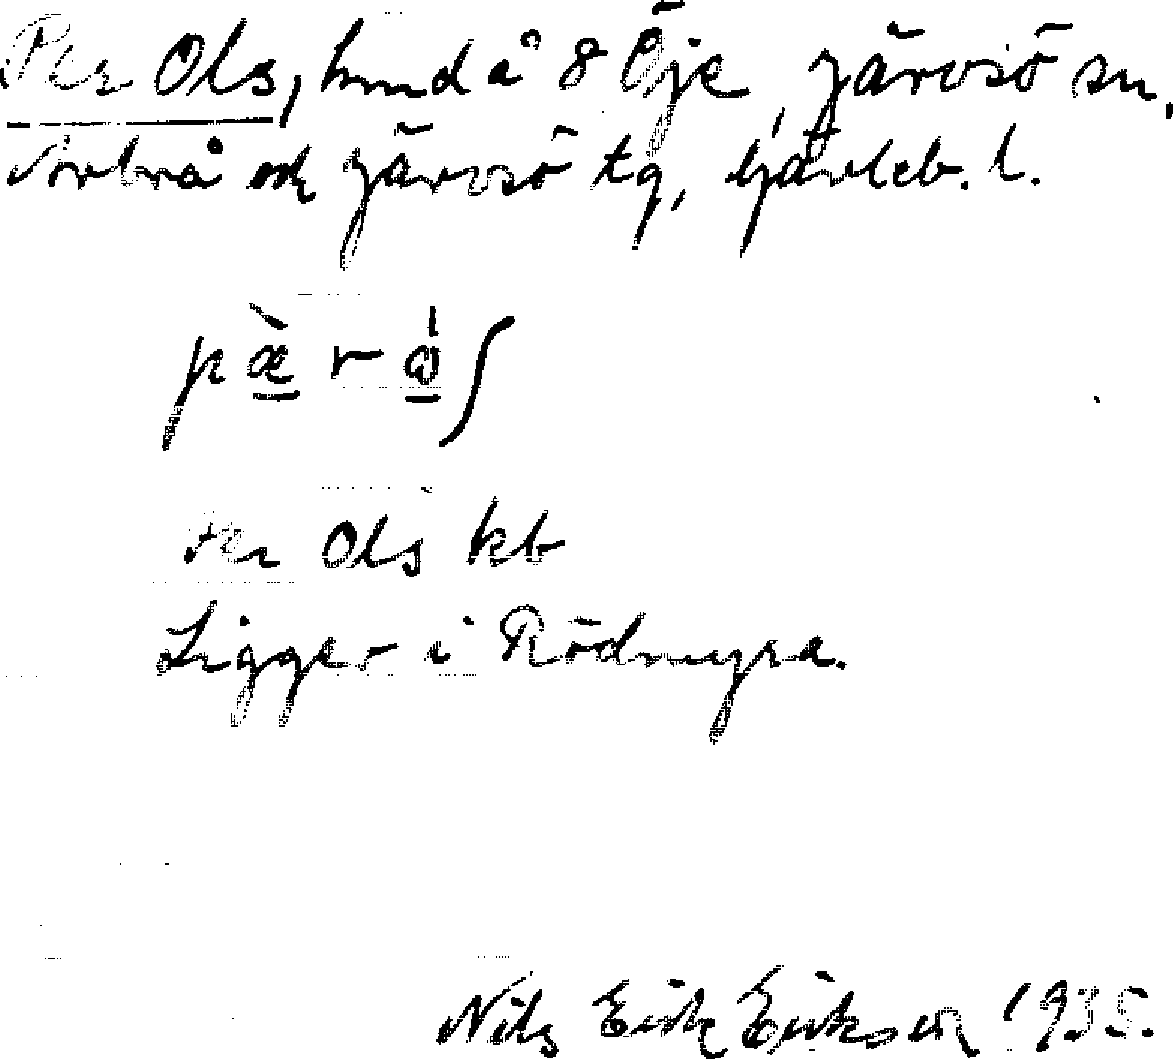 Per Ols, hmd å 8 Öje, Järvsö sn,
Arbrå och Järvsö tg, Gävleb. l.
pæ̀r ʃ
Per Ols kb
Ligger i Rödmyra.
Nils Erik Erikson 1935.